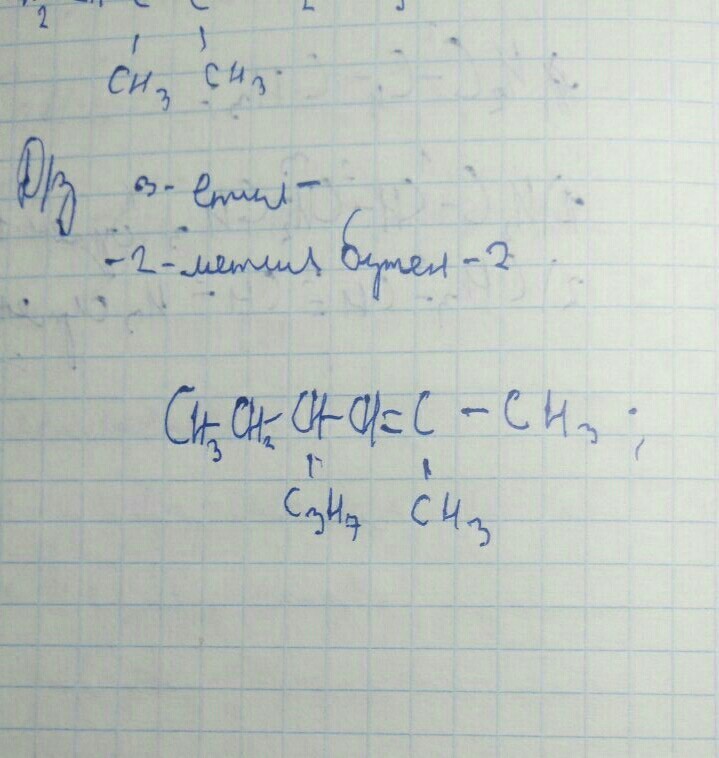 CH₃ CH₃
Д/з 3-етил-
-2-метил бутен-2
CH₃-CH₂-CH-CH=C-CH₃;
C₃H₇ CH₃